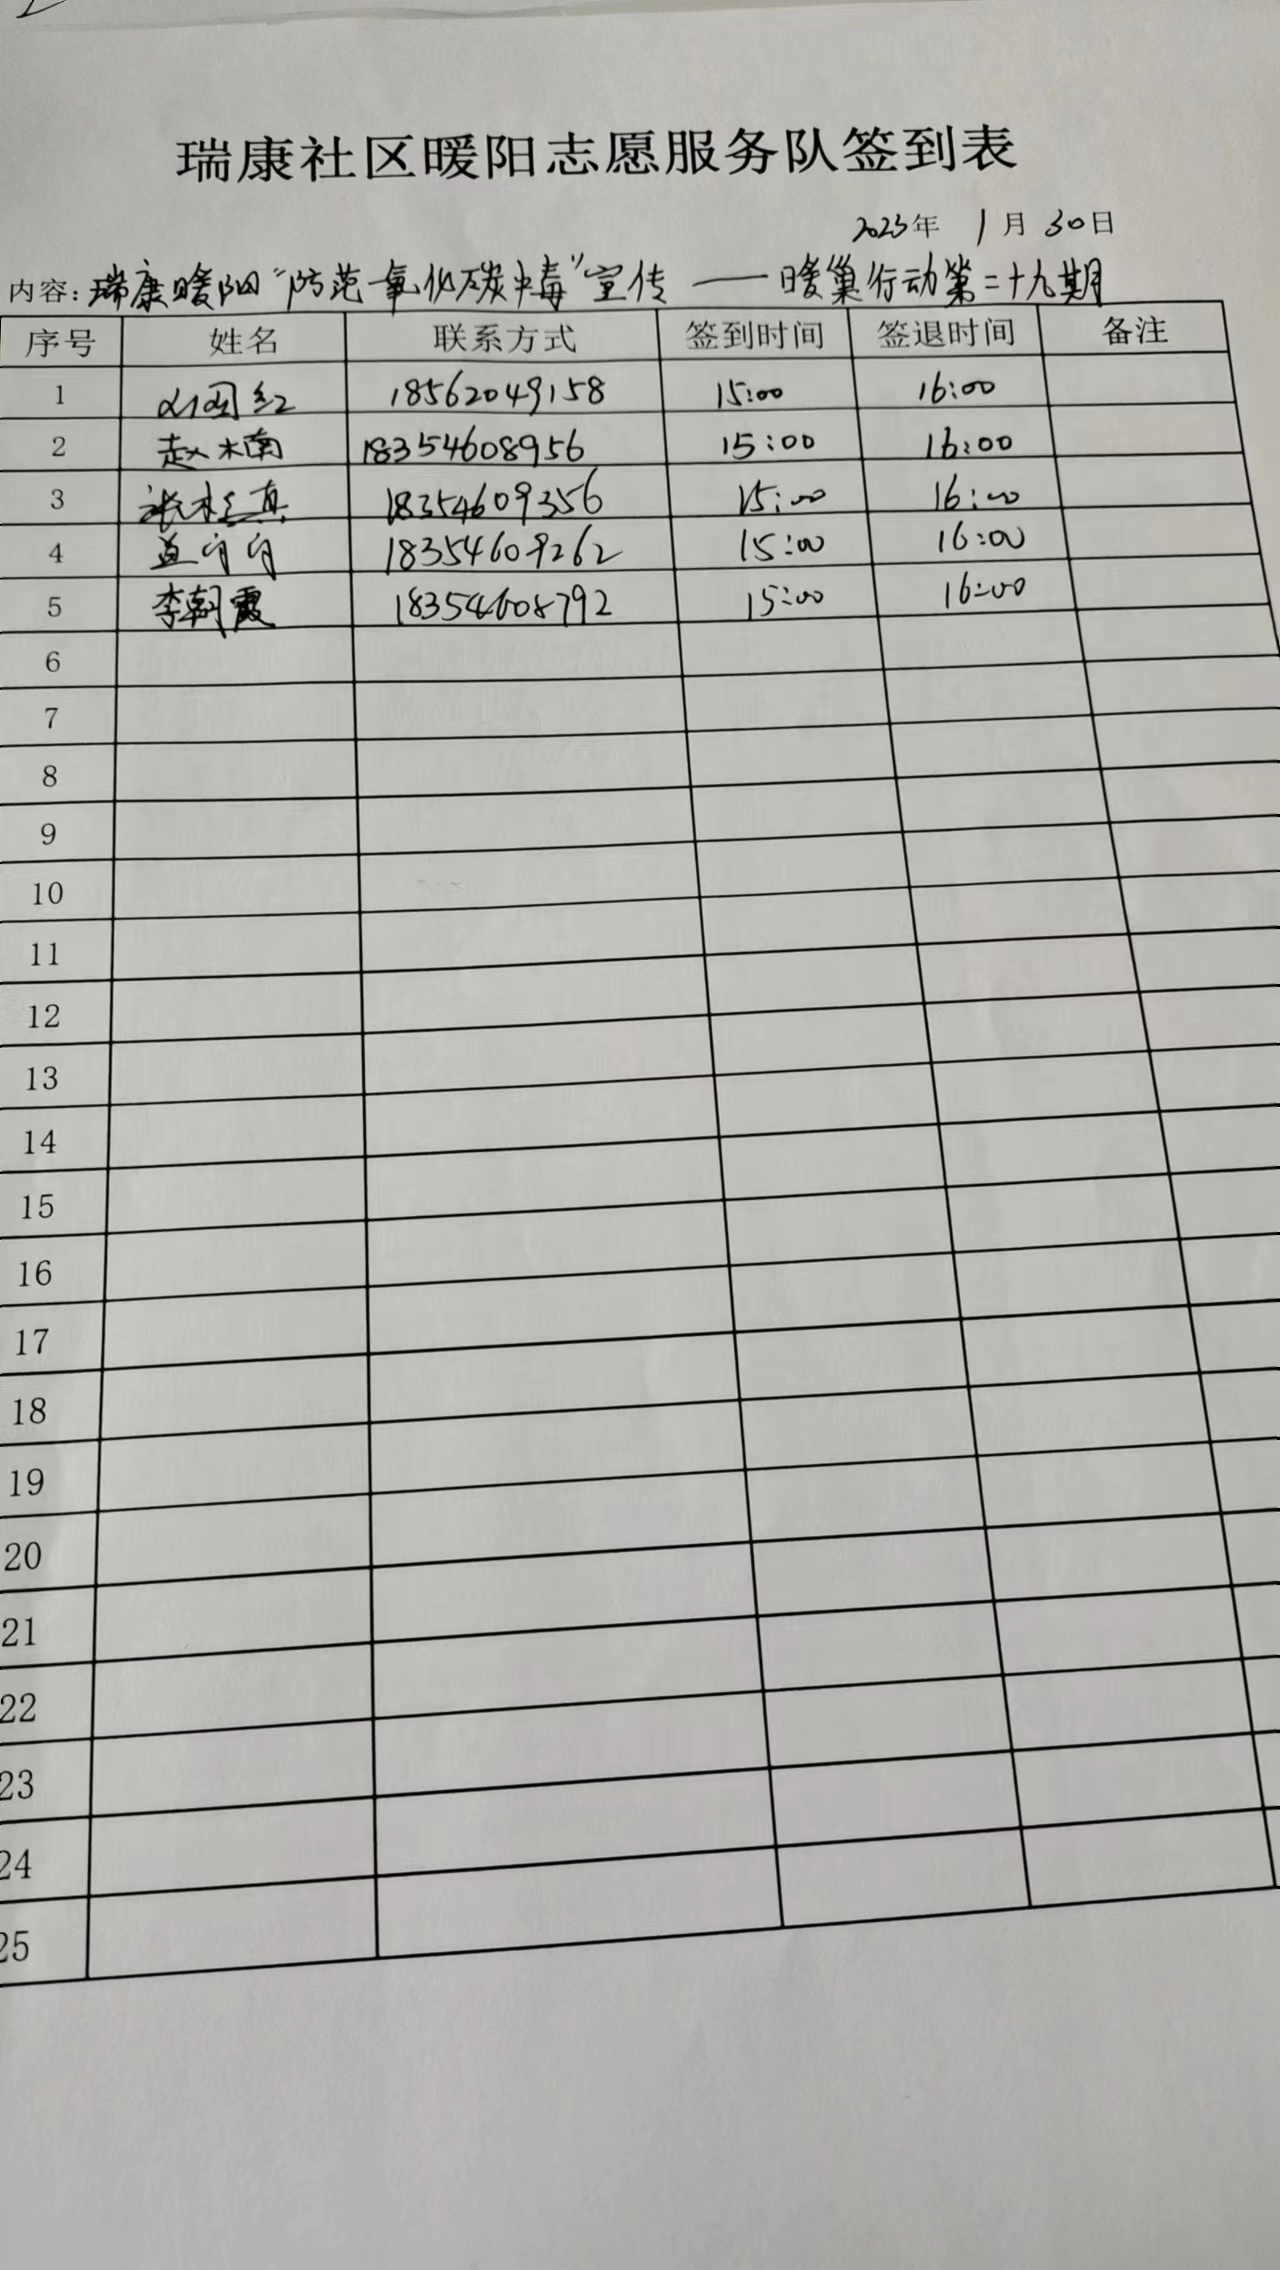 瑞康社区暖阳志愿服务队签到表
2023年 1月 30日
内容：瑞康暖阳“防范一氧化碳中毒”宣传——暖巢行动第二十九期
序号 姓名 联系方式 签到时间 签退时间 备注
1 18562049158 15:00 16:00
2 赵木南 18354608956 15:00 16:00
3 张桂真 18354609356 15:00 16:00
4 18354609262 15:00 16:00
5 李朝霞 18354608792 15:00 16:00
6
7
8
9
10
11
12
13
14
15
16
17
18
19
20
21
22
23
24
25